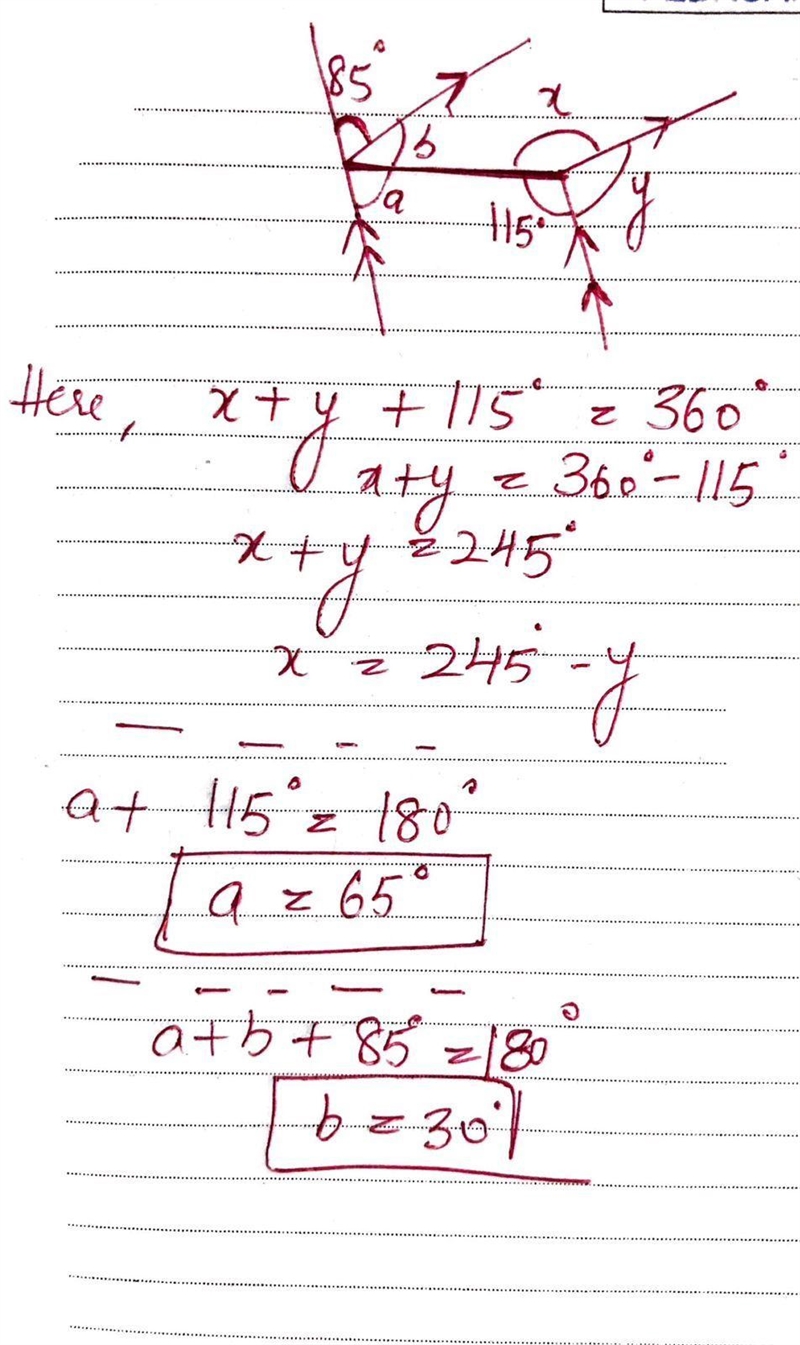 85°
x
b
a
y
115°
Here, x + y + 115° = 360°
x+y = 360° - 115°
x + y = 245°
x = 245° - y
a + 115° = 180°
a = 65°
a + b + 85° = 180°
b = 30°